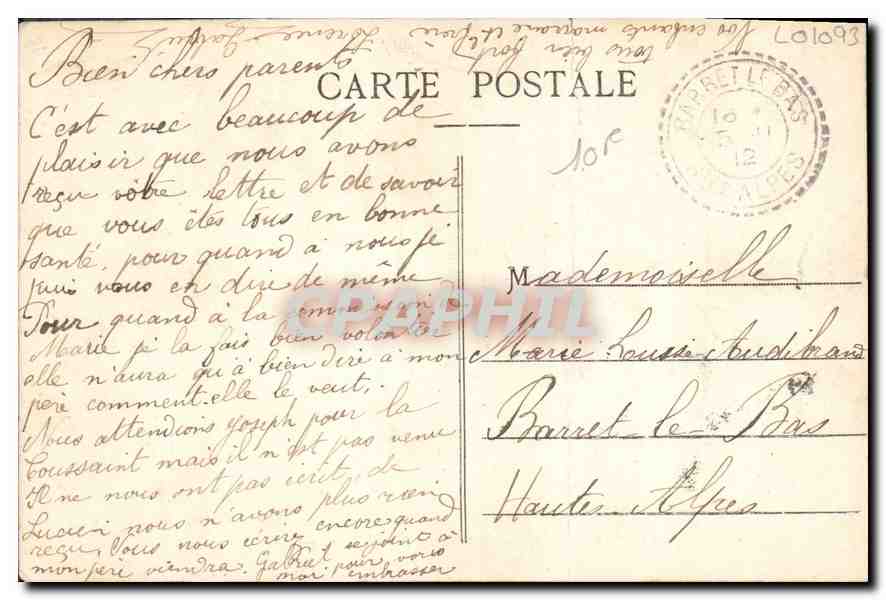 LO1093
Nos enfants
tous bien fort
CARTE POSTALE
BARRET LE BAS
12
ALPES
10F
Bien chers parents
C'est avec beaucoup de
plaisir que nous avons
reçu vôtre lettre et de savoir
que vous êtes tous en bonne
santé, pour quand à nous je
puis vous en dire de même
Pour quand à la commission à
Marie je la fais bien volontier
elle n'aura qu'à bien dire à mon
père comment elle le veut.
Nous attendions Joseph pour la
Toussaint mais il n'est pas venu
Il ne nous ont pas écrit, de
Lucien nous n'avons plus rien
reçu, Vous nous écrire encore quand
mon père viendra. Gabriel se joint à
moi pour vous
embrasser
Mademoiselle
Marie Louise Audibrand
Barret-le-Bas
Hautes-Alpes
CPAPHIL